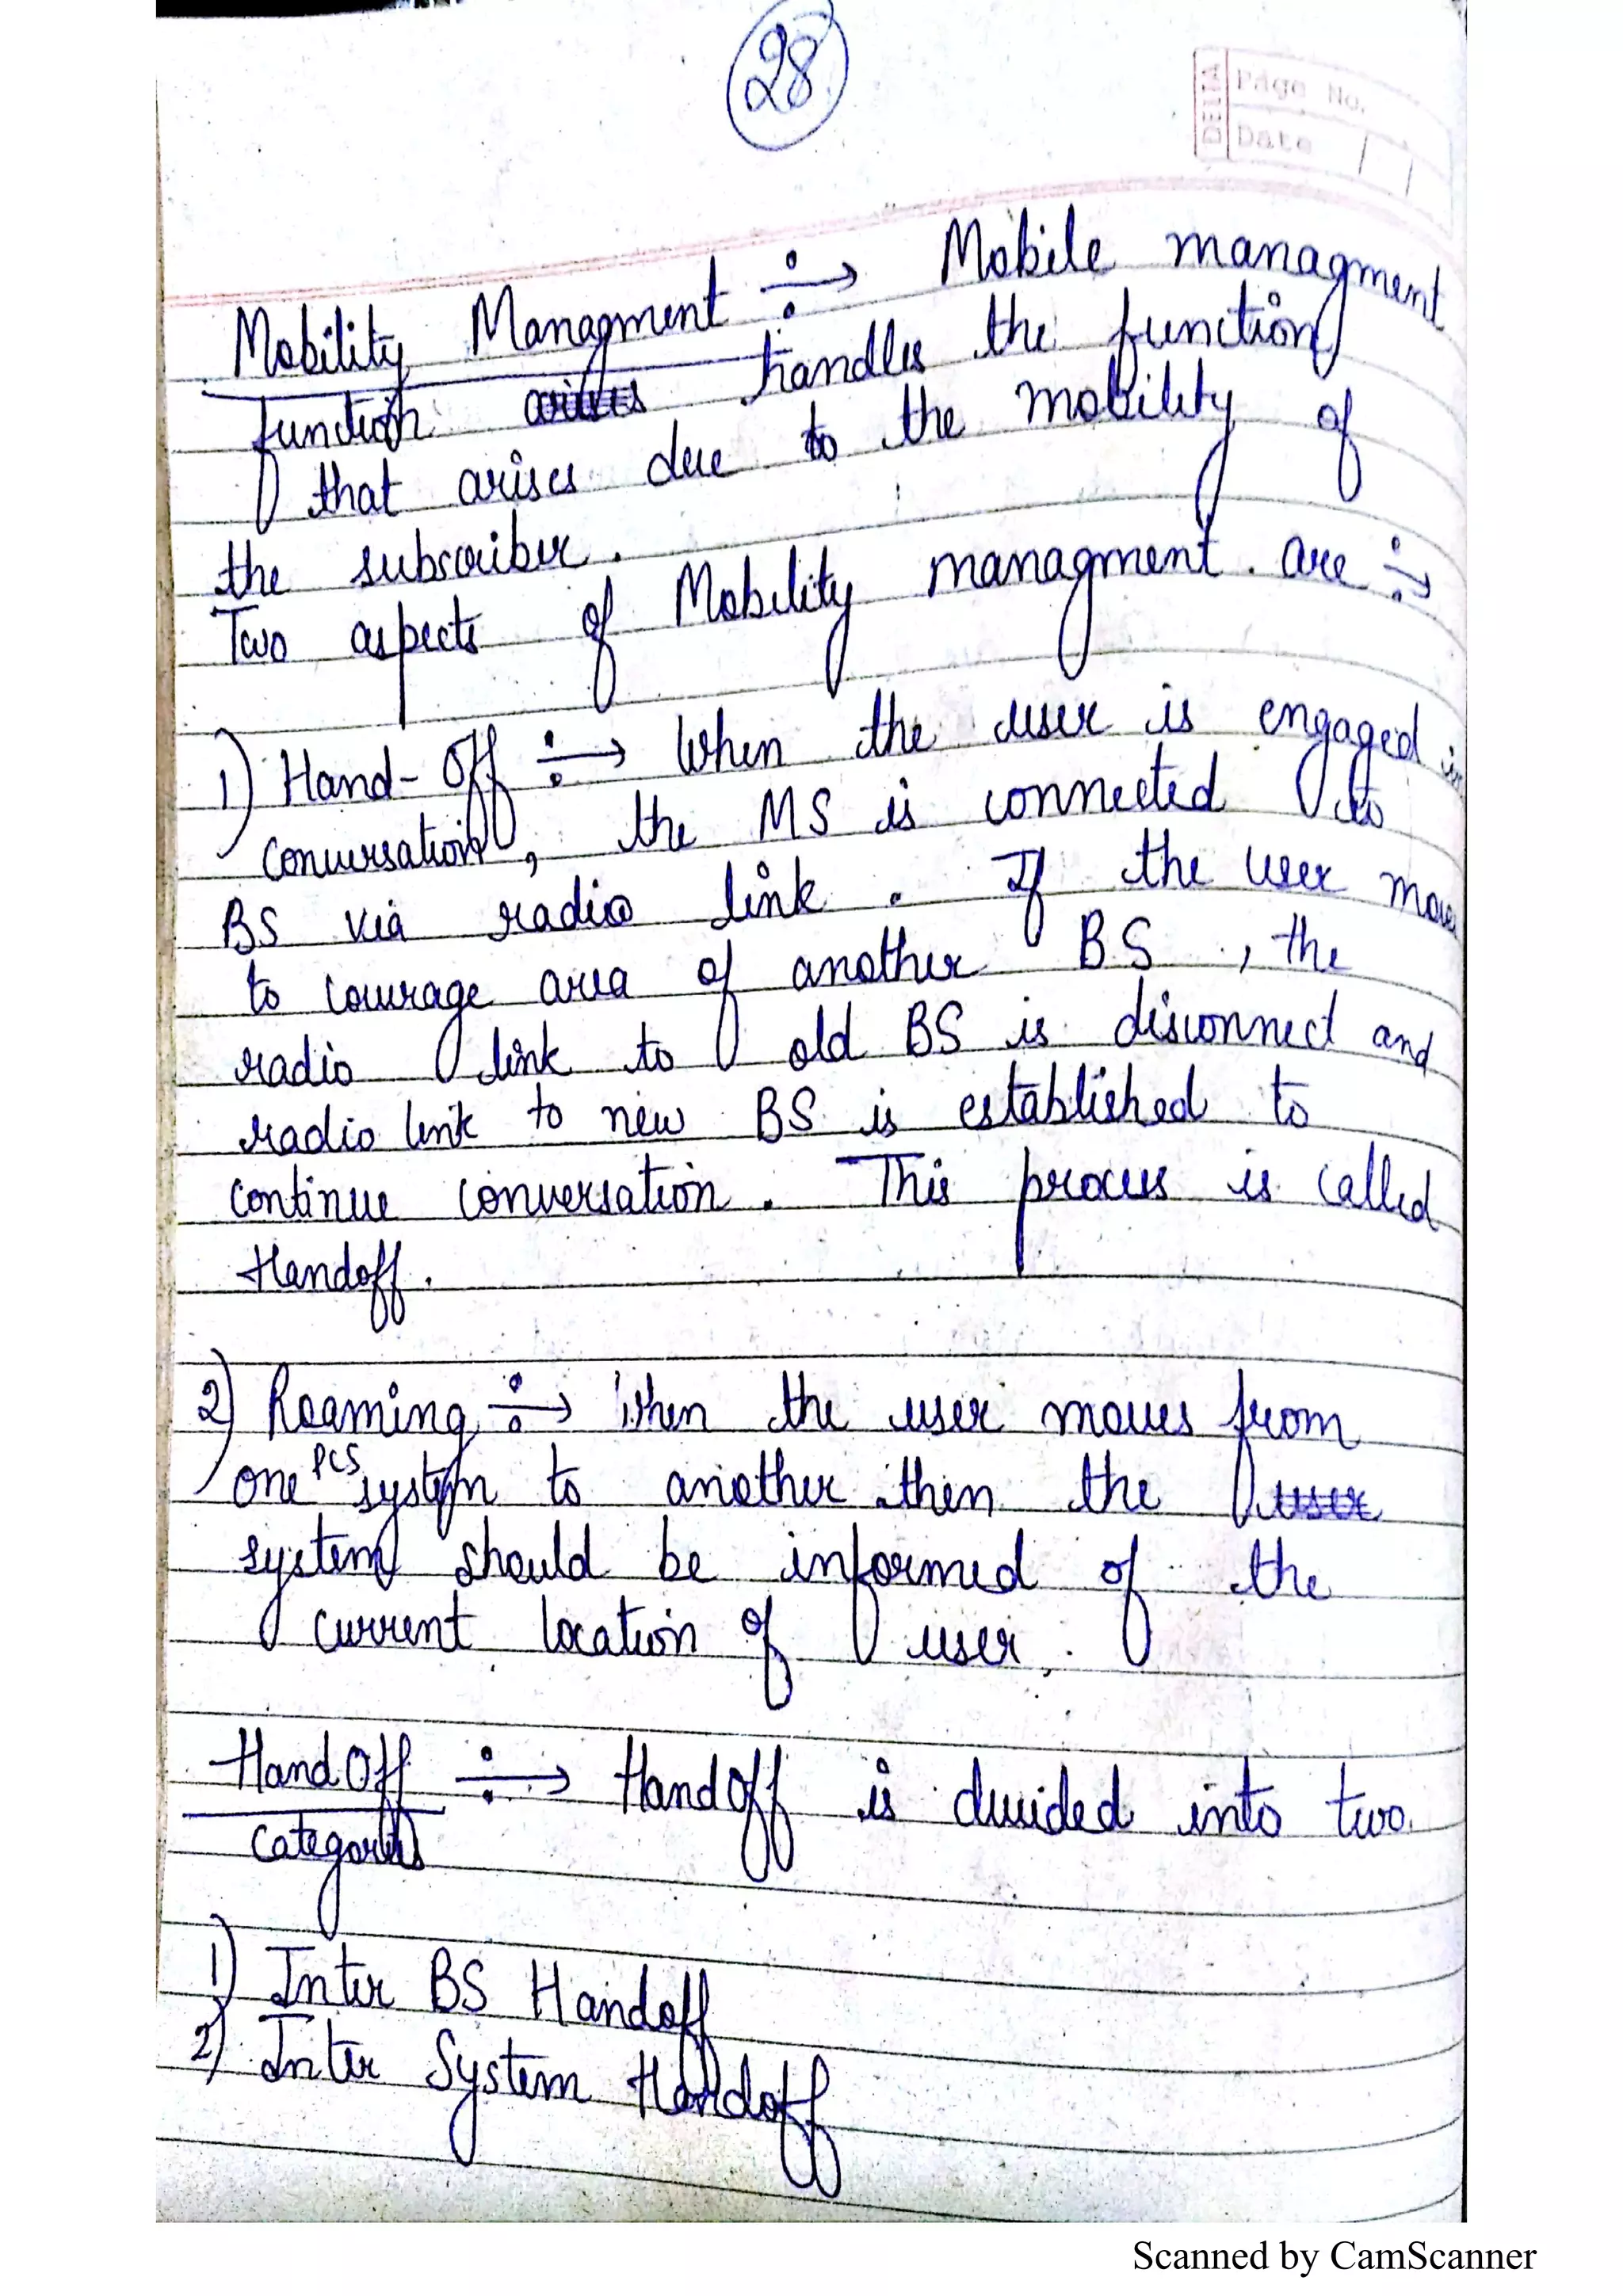 28
DELTA
Page No.
Date
Mobility Managment ÷→ Mobile managment
function handles the function
that arises due to the mobility of
the subscriber.
Two aspects of Mobility managment. are ÷→
1) Hand-Off ÷→ When the user is engaged in
conversation, the MS is connected to
BS via radio link. If the user moves
to coverage area of another BS, the
radio link to old BS is disconnect and
radio link to new BS is established to
continue conversation. This process is called
Handoff.
2) Roaming ÷→ When the user moves from
one PCS system to another then the user
system should be informed of the
current location of user.
HandOff ÷→ HandOff is divided into two.
Categories
1) Inter BS Handoff
2) Inter System Handoff
Scanned by CamScanner